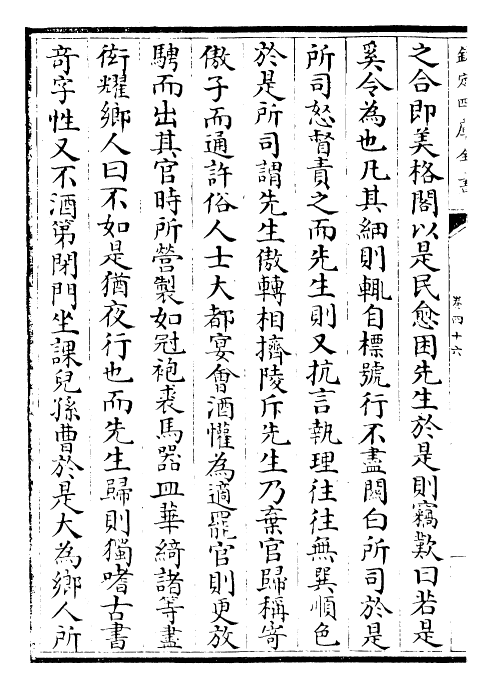 欽定四庫全書
卷四十六
之合即美格閣以是民愈困先生於是則竊歎曰若是
奚令為也凡其細則輒自標號行不盡關白所司於是
所司怒督責之而先生則又抗言執理往往無巽順色
於是所司謂先生傲轉相擠陵斥先生乃棄官歸稱寄
傲子而通許俗人士大都宴會酒懽為適罷官則更放
騁而出其官時所營製如冠袍裘馬器皿華綺諸等盡
衒耀鄉人曰不如是猶夜行也而先生歸則獨嗜古書
竒字性又不酒第閉門坐課兒孫曹於是大為鄉人所